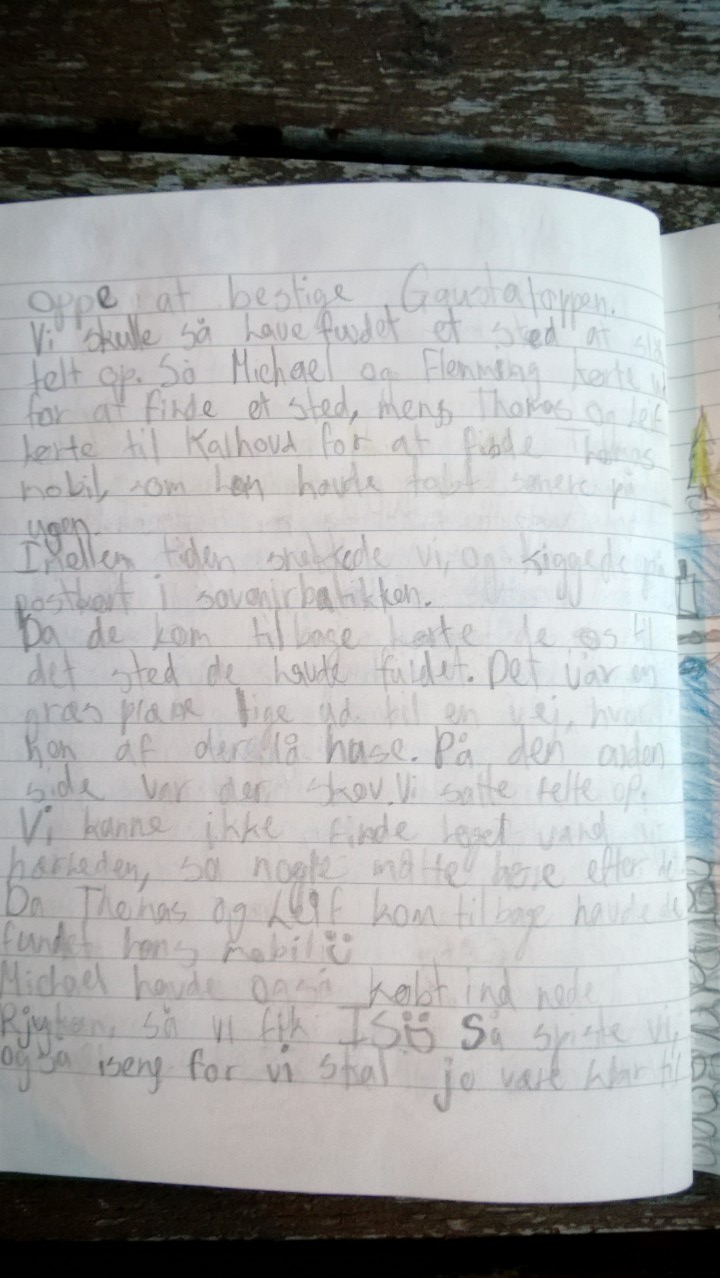 oppe at bestige Gaustatoppen.
Vi skulle så have fundet et sted at slå
telt op. Så Michael og Flemming kørte
for at finde et sted, mens Thomas og Leif
kørte til Kalhovd for at finde Thomas
mobil, som han havde tabt senere på
ugen.
Imellem tiden snakkede vi, og kiggede på
postkort i sovenirbutikken.
Da de kom tilbage kørte de os til
det sted de havde fuldet. Det var en
græs plane lige ud til en vej, hvor
kon af der lå huse. På den anden
side var der skov. Vi satte telte op.
Vi kunne ikke finde noget vand i
hærheden, så nogle måtte køre efter
Da Thomas og Leif kom tilbage havde de
fundet hans mobil ü
Michael havde også købt ind nede
Rjukan, så vi fik IS Så spiste vi,
også iseng for vi skal jo være klar til